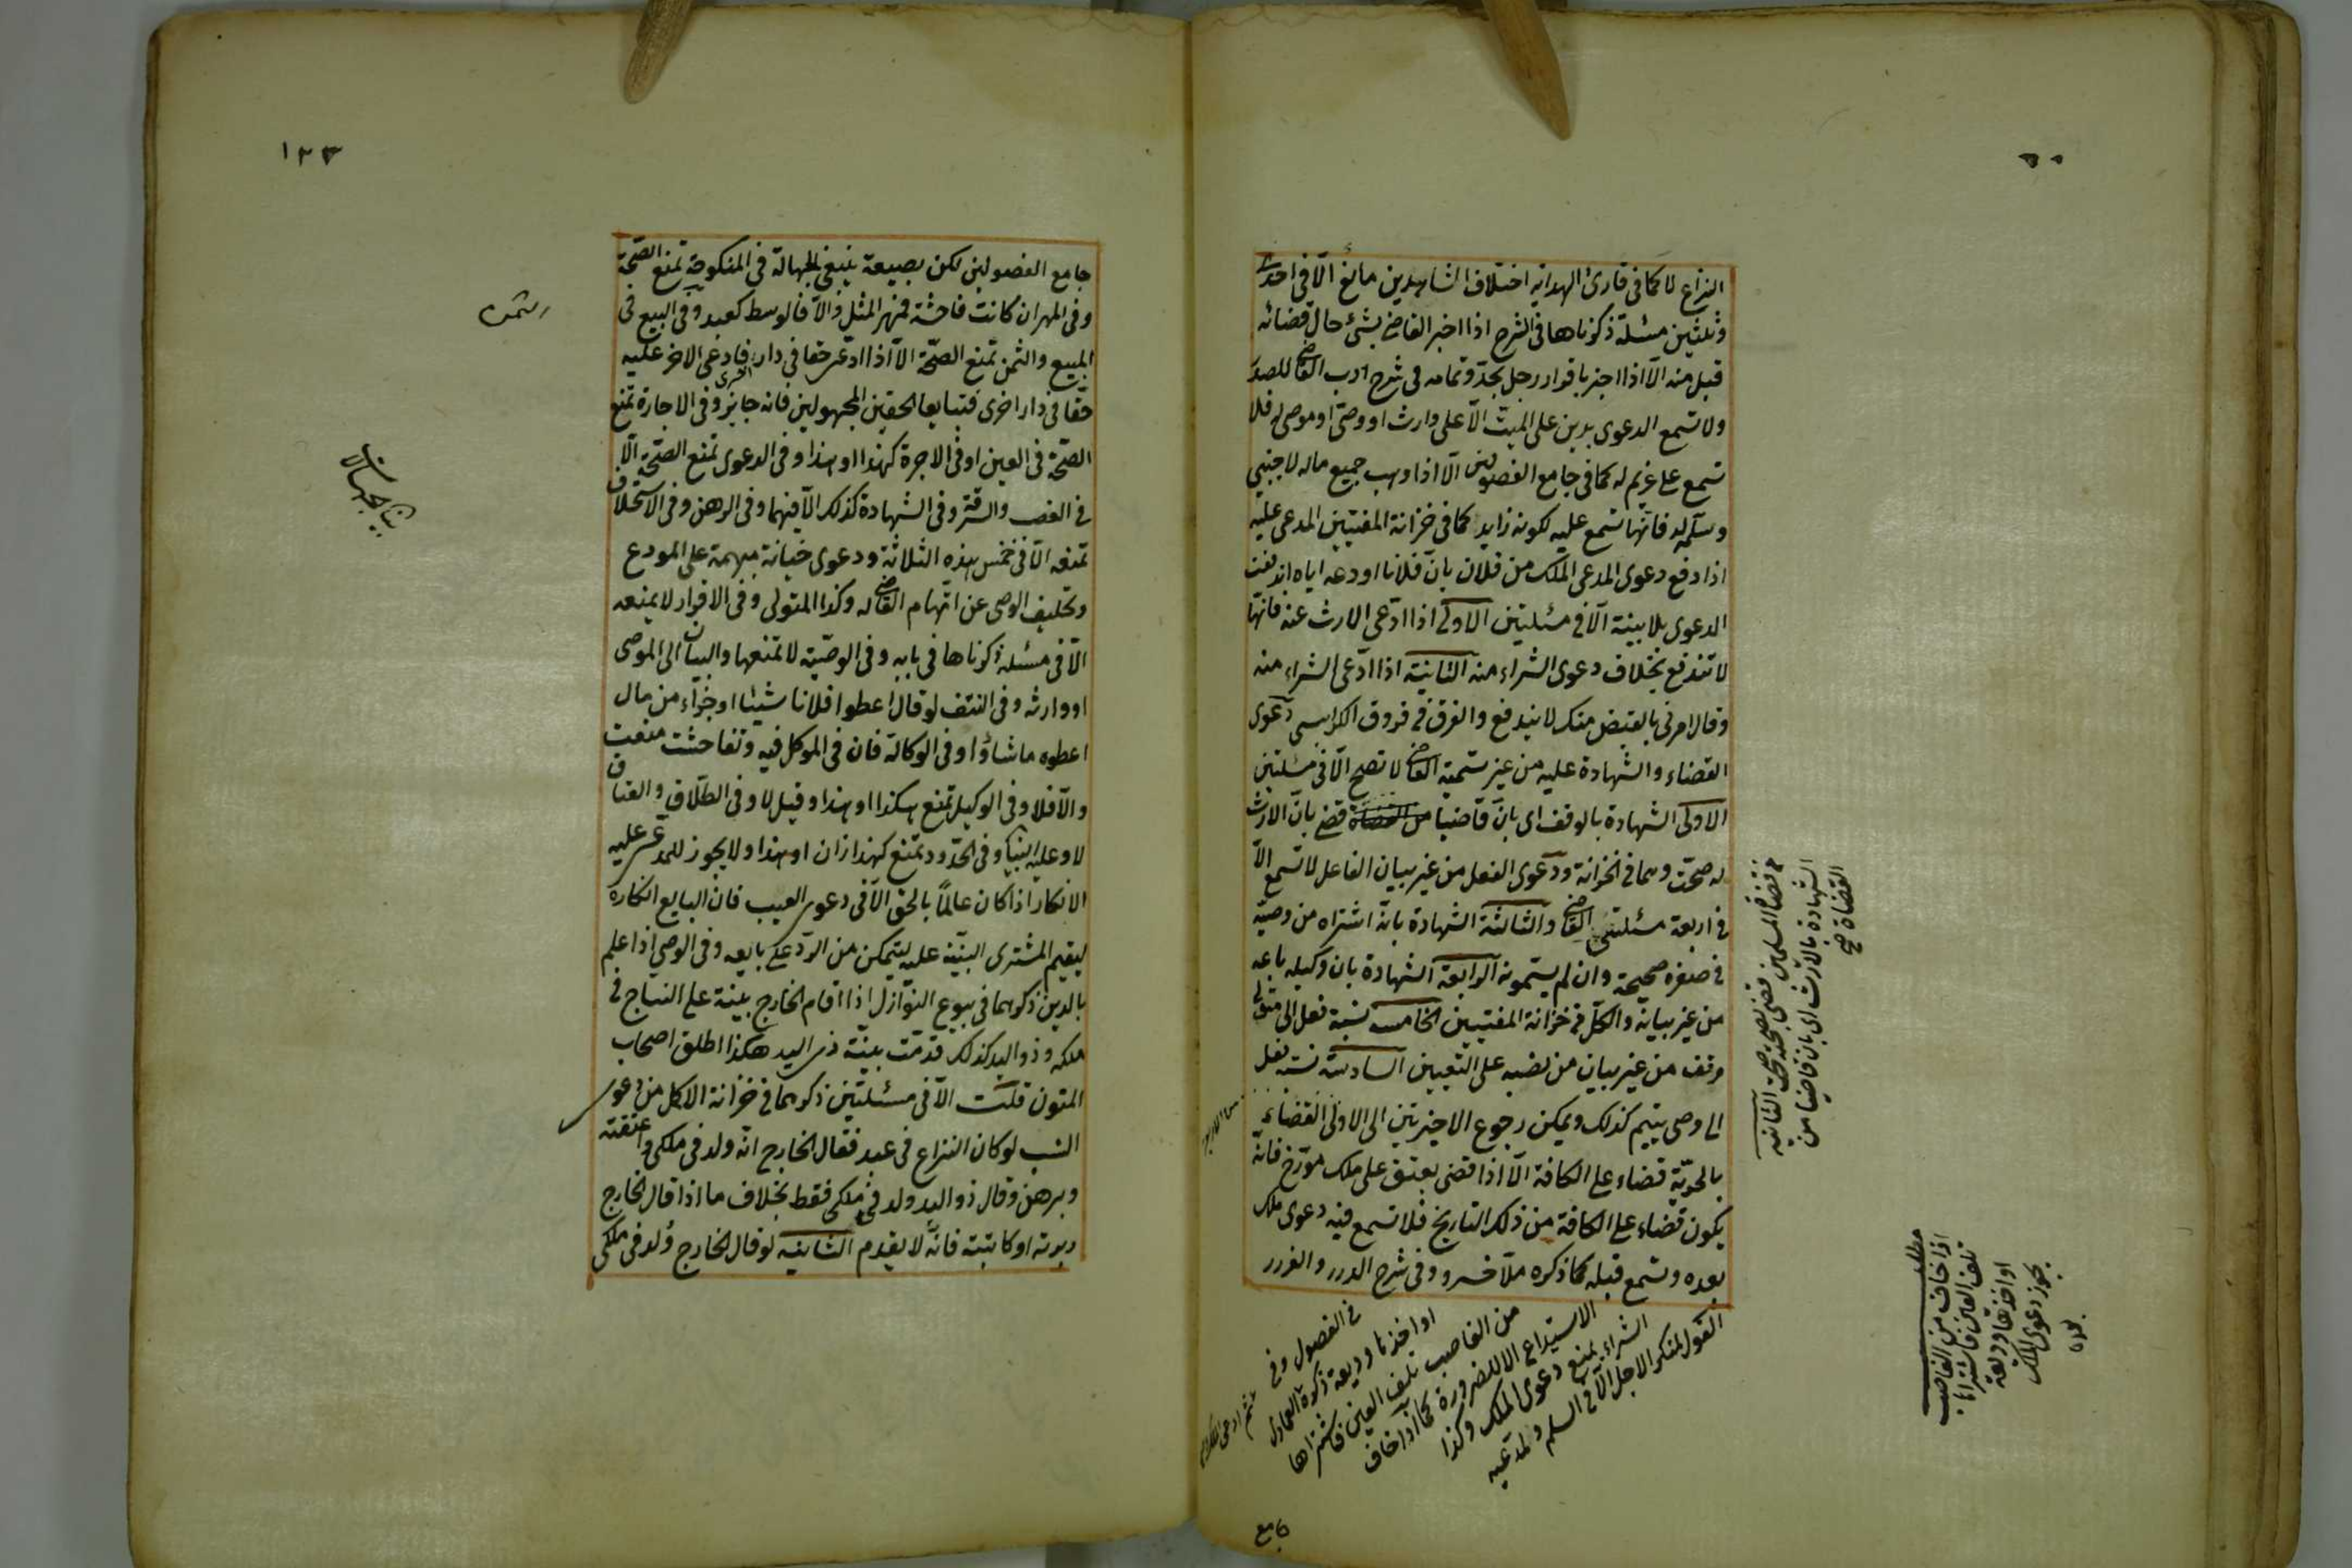 النزاع لا كما فى قارئ الهداية اختلاف الشاهدين مانع الّا فى احدى
وثلثين مسئلة ذكرناها فى الشرح اذا اخبر القاضى بشئ حال قضائه
قبل منه الّا اذا اخبر باقرار رجل بحدّ وتمامه فى شرح ادب القاضى للصدر
ولا تسمع الدعوى بدين على الميت الّا على وارث او وصىّ او موصى له فلا
تسمع على غريم له كما فى جامع الفصولين الّا اذا وهب جميع ماله لاجنبي
وسلّمه له فانّها تسمع عليه لكونه زايد كما فى خزانة المفتيين المدعى عليه
اذا دفع دعوى المدعى الملك من فلان بانّ فلانا اودعه اياه اندفعت
الدعوى بلا بينة الّا فى مسئلتين الاولى اذا ادّعى الارث عنه فانّها
لا تندفع بخلاف دعوى الشراء منه الثانية اذا ادّعى الشراء منه
وقال امرنى بالقبض منك لا يندفع والفرق فى فروق الكرابيسى دعوى
القضاء والشهادة عليه من غير تسمية القاضى لا تصح الّا فى مسئلتين
الاولى الشهادة بالوقف اى بانّ قاضيا من القضاة قضى بانّ الارث
له صحّت وهما فى الخزانة ودعوى الفعل من غير بيان الفاعل لا تسمع الّا
فى اربعة مسئلتى القاضى والثالثة الشهادة بانّه اشتراه من وصيّه
فى صغره صحيحة وان لم يسمّوه الرابعة الشهادة بان وكيله باعه
من غير بيانه والكلّ فى خزانة المفتيين الخامسة نسبة فعل الى متولى
وقف من غير بيان من نصبه على التعيين السادسة نسبة فعل
الى وصى يتيم كذلك ويمكن رجوع الاخيرتين الى الاولى القضاء
بالحريّة قضاء على الكافة الّا اذا قضى بعتق على ملك مورّخ فانّه
يكون قضاء على الكافة من ذلك التاريخ فلا تسمع فيه دعوى ملك
بعده وتسمع قبله كما ذكره ملّا خسرو وفى شرح الدرر والغرر
القول لمنكر الاجل الّا فى السلم ولمدّعيه
الشراء يمنع دعوى الملك وكذا
الاستيداع الا لضرورة كما اذا خاف
من الغاصب تلف العين فاشتراها
او اخذها وديعة ذكره العمادى
فى الفصول وفى
جامع
قضاة المسلمين قضى بصحّته صحت الثانية
الشهادة بالارث اى بان قاضيا من
القضاة صح
مطلب
اذا خاف من الغاصب
تلف العين فاشتراها
او اخذها وديعة
يجوز دعوى الملك
بعده
١٢٣
جامع الفصولين لكن بصيغة ينبغى الجهالة فى المنكوحة تمنع الصّحّة
وفى المهر ان كانت فاحشة فمهر المثل والّا فالوسط كعبد وفى البيع فى
المبيع والثمن تمنع الصّحّة الّا اذا ادّعى حقا فى دار فادعى الاخر عليه
حقّا فى دار اخرى فتبايعا الحقين المجهولين فانه جايز وفى الاجارة تمنع
الصّحّة فى العين او فى الاجرة كهذا او هذا وفى الدعوى تمنع الصّحّة الّا
فى الغصب والسرقة وفى الشهادة كذلك الّا فيهما وفى الرهن وفى الاستحلاف
تمنعه الّا فى خمس هذه الثلاثة ودعوى خيانة مبهمة على المودع
وتحليف الوصى عن اتهام القاضى له وكذا المتولى وفى الاقرار لا يمنعه
الّا فى مسئلة ذكرناها فى بابه وفى الوصيّة لا تمنعها والبيان الى الموصى
او وارثه وفى النتف لو قال اعطوا فلانا شيئا او جزأء من مال
اعطوه ما شاؤا وفى الوكالة فان فى الموكل فيه وتفاحشت منعت
والّا فلا وفى الوكيل تمنع هكذا او هذا وقيل لا وفى الطلاق والعتاق
لا وعليه البيان وفى الحدود تمنع كهذا زان او هذا ولا يجوز للمدعى عليه
الانكار اذا كان عالمًا بالحق الّا فى دعوى العيب فان البايع انكاره
ليقيم المشترى البيّنة عليه ليتمكن من الردّ على بايعه وفى الوصى اذا علم
بالدين ذكرهما فى بيوع النوّازل اذا اقام الخارج بينة على النتاج فى
ملكه وذو اليد كذلك قدّمت بيّنة ذى اليد هكذا اطلق اصحاب
المتون قلت الّا فى مسئلتين ذكرهما فى خزانة الاكمل من دعوى
النسب لو كان النزاع فى عبد فقال الخارج انّه ولد فى ملكى واعتقته
وبرهن وقال ذو اليد ولد فى ملكى فقط بخلاف ما اذا قال الخارج
دبرته او كاتبته فانّه لا يقدم الثانية لو قال الخارج وُلد فى ملكى
بيان الجهالات